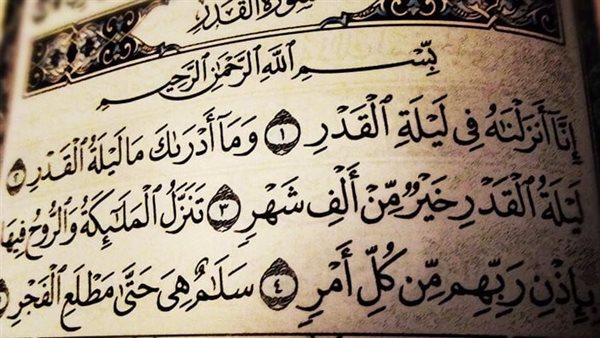 سُورَةُ القَدْرِ
بِسْمِ اللَّهِ الرَّحْمَٰنِ الرَّحِيمِ
إِنَّا أَنزَلْنَاهُ فِي لَيْلَةِ الْقَدْرِ ١ وَمَا أَدْرَاكَ مَا لَيْلَةُ الْقَدْرِ ٢
لَيْلَةُ الْقَدْرِ خَيْرٌ مِّنْ أَلْفِ شَهْرٍ ٣ تَنَزَّلُ الْمَلَائِكَةُ وَالرُّوحُ فِيهَا
بِإِذْنِ رَبِّهِم مِّن كُلِّ أَمْرٍ ٤ سَلَامٌ هِيَ حَتَّىٰ مَطْلَعِ الْفَجْرِ